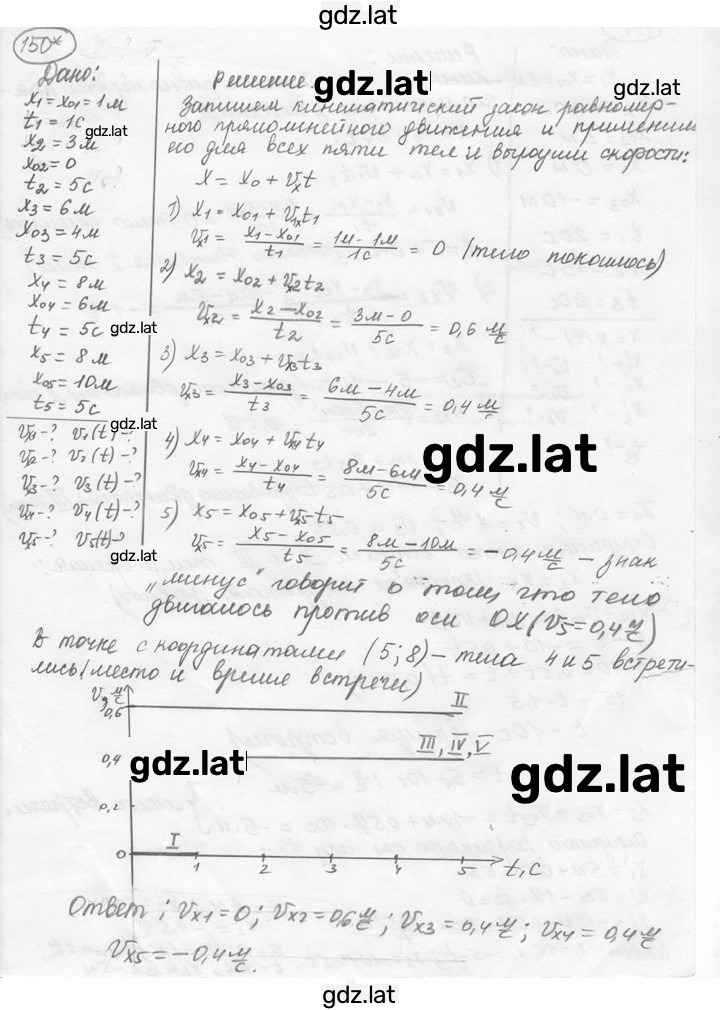 gdz.lat
150*
Дано:
x1 = x01 = 1м
t1 = 1с
gdz.lat
x2 = 3м
x02 = 0
t2 = 5с
x3 = 6м
x03 = 4м
t3 = 5с
x4 = 8м
x04 = 6м
t4 = 5с
gdz.lat
x5 = 8м
x05 = 10м
t5 = 5с
gdz.lat
Vx1 -? V1(t) -?
Vx2 -? V2(t) -?
Vx3 -? V3(t) -?
Vx4 -? V4(t) -?
Vx5 -? V5(t) -?
gdz.lat
Решение.
gdz.lat
Запишем кинематический закон равномер-
ного прямолинейного движения и применим
его для всех пяти тел и выразим скорости:
x = x0 + Vxt
1) x1 = x01 + V1xt1
Vx1 = (x1 - x01)/t1 = (1м - 1м)/1с = 0 (тело покоилось)
2) x2 = x02 + Vx2t2
Vx2 = (x2 - x02)/t2 = (3м - 0)/5с = 0,6 м/с
3) x3 = x03 + Vx3t3
Vx3 = (x3 - x03)/t3 = (6м - 4м)/5с = 0,4 м/с
4) x4 = x04 + Vx4t4
gdz.lat
Vx4 = (x4 - x04)/t4 = (8м - 6м)/5с = 0,4 м/с
5) x5 = x05 + Vx5t5
Vx5 = (x5 - x05)/t5 = (8м - 10м)/5с = -0,4 м/с - знак
„минус" говорит о том, что тело
двигалось против оси OX (V5 = 0,4 м/с)
В точке с координатами (5; 8) - тела 4 и 5 встрети-
лись (место и время встречи)
V, м/с
0,6
II
0,4
III, IV, V
gdz.lat
gdz.lat
0,2
0
I
1 2 3 4 5 t, с
Ответ: Vx1 = 0; Vx2 = 0,6 м/с; Vx3 = 0,4 м/с; Vx4 = 0,4 м/с
Vx5 = -0,4 м/с.
gdz.lat